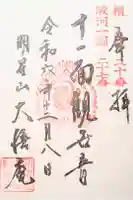 奉拝
横道二十番
駿河一國二十七番
十一面観世音
令和六年十二月八日
明星山大悟庵